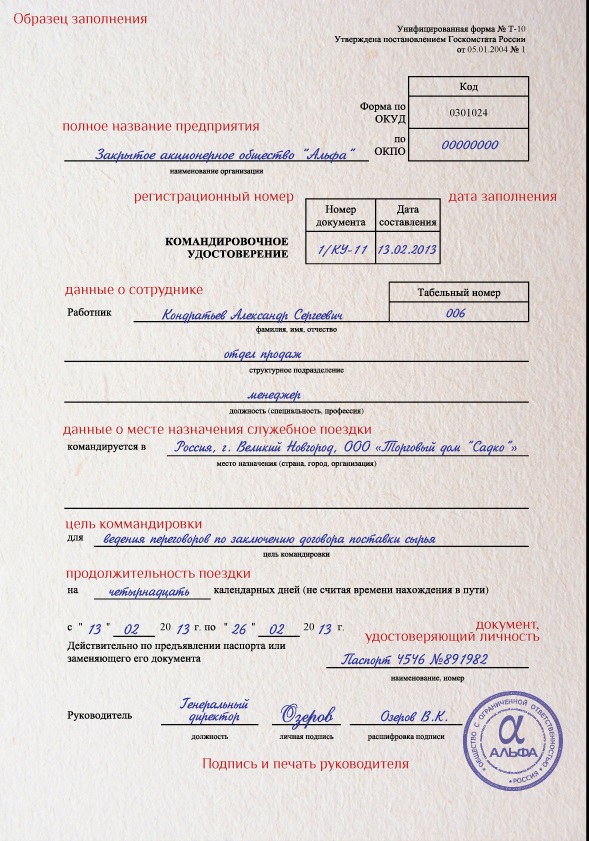 Образец заполнения
Унифицированная форма № Т-10
Утверждена постановлением Госкомстата России
от 05.01.2004 № 1
Код
Форма по ОКУД
0301024
полное название предприятия
по ОКПО
00000000
Закрытое акционерное общество "Альфа"
наименование организации
регистрационный номер
дата заполнения
Номер документа
Дата составления
КОМАНДИРОВОЧНОЕ
УДОСТОВЕРЕНИЕ
1/КУ-11
13.02.2013
данные о сотруднике
Табельный номер
Работник Кондратьев Александр Сергеевич
006
фамилия, имя, отчество
отдел продаж
структурное подразделение
менеджер
должность (специальность, профессия)
данные о месте назначения служебное поездки
командируется в Россия, г. Великий Новгород, ООО «Торговый дом "Садко"»
место назначения (страна, город, организация)
цель коммандировки
для ведения переговоров по заключению договора поставки сырья
цель командировки
продолжительность поездки
на четырнадцать календарных дней (не считая времени нахождения в пути)
с " 13 " 02 20 13 г. по " 26 " 02 20 13 г.
документ,
удостоверяющий личность
Действительно по предъявлении паспорта или
заменяющего его документа
Паспорт 4546 №891982
наименование, номер
Руководитель
Генеральный
директор
Озеров
Озеров В.К.
должность
личная подпись
расшифровка подписи
Подпись и печать руководителя
ОБЩЕСТВО С ОГРАНИЧЕННОЙ ОТВЕТСТВЕННОСТЬЮ
α
АЛЬФА
РОССИЯ